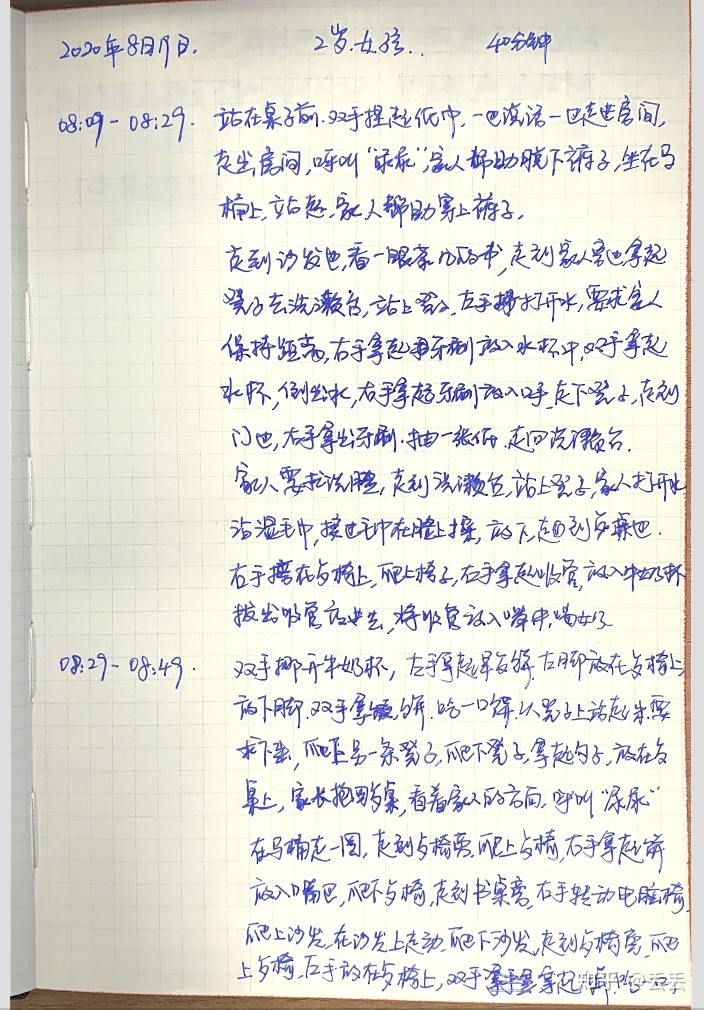 2020年8月19日. 2岁.女孩.. 40分钟
08:09-08:29. 站在桌子前.双手捏起纸巾,一边说话一边走进房间,
走出房间,呼叫“尿尿”,家人帮助脱下裤子,坐在马
桶上,站起,家人帮助穿上裤子.
走到沙发边,看一眼茶几的书,走到家人旁边,拿起
凳子去洗漱台,站上凳子,左手打开水,要求家人
保持距离,右手拿起牙刷放入水杯中,双手拿起
水杯,倒出水,右手拿起牙刷放入口中,走下凳子,走到
门边,右手拿出牙刷.抽一张纸.走回洗漱台.
家人要求洗脸,走到洗漱台,站上凳子,家人打开水
沾湿毛巾,接过毛巾在脸上擦,放下,走回到餐桌边.
右手撑在餐椅上,爬上椅子,右手拿起吸管,放入牛奶杯
拔出吸管放进去,将吸管放入嘴中,喝奶
08:29-08:49. 双手挪开牛奶杯,右手拿起早餐饼,左脚放在餐椅上,
放下脚.双手拿饼.吃一口饼.从凳子上站起来.要
求下来,爬上另一条凳子,爬下凳子,拿起勺子,放在餐
桌上,家长抱回餐桌,看着家人的方向.呼叫“尿尿”
在马桶走一圈,走到餐椅旁.爬上餐椅,右手拿起饼
放入嘴巴,爬下餐椅,走到书桌旁,右手转动电脑椅,
爬上沙发,在沙发上走动.爬下沙发,走到餐椅旁,爬
上餐椅.右手放在餐椅上,双手拿起饼.吃一口,
知乎 @丢丢